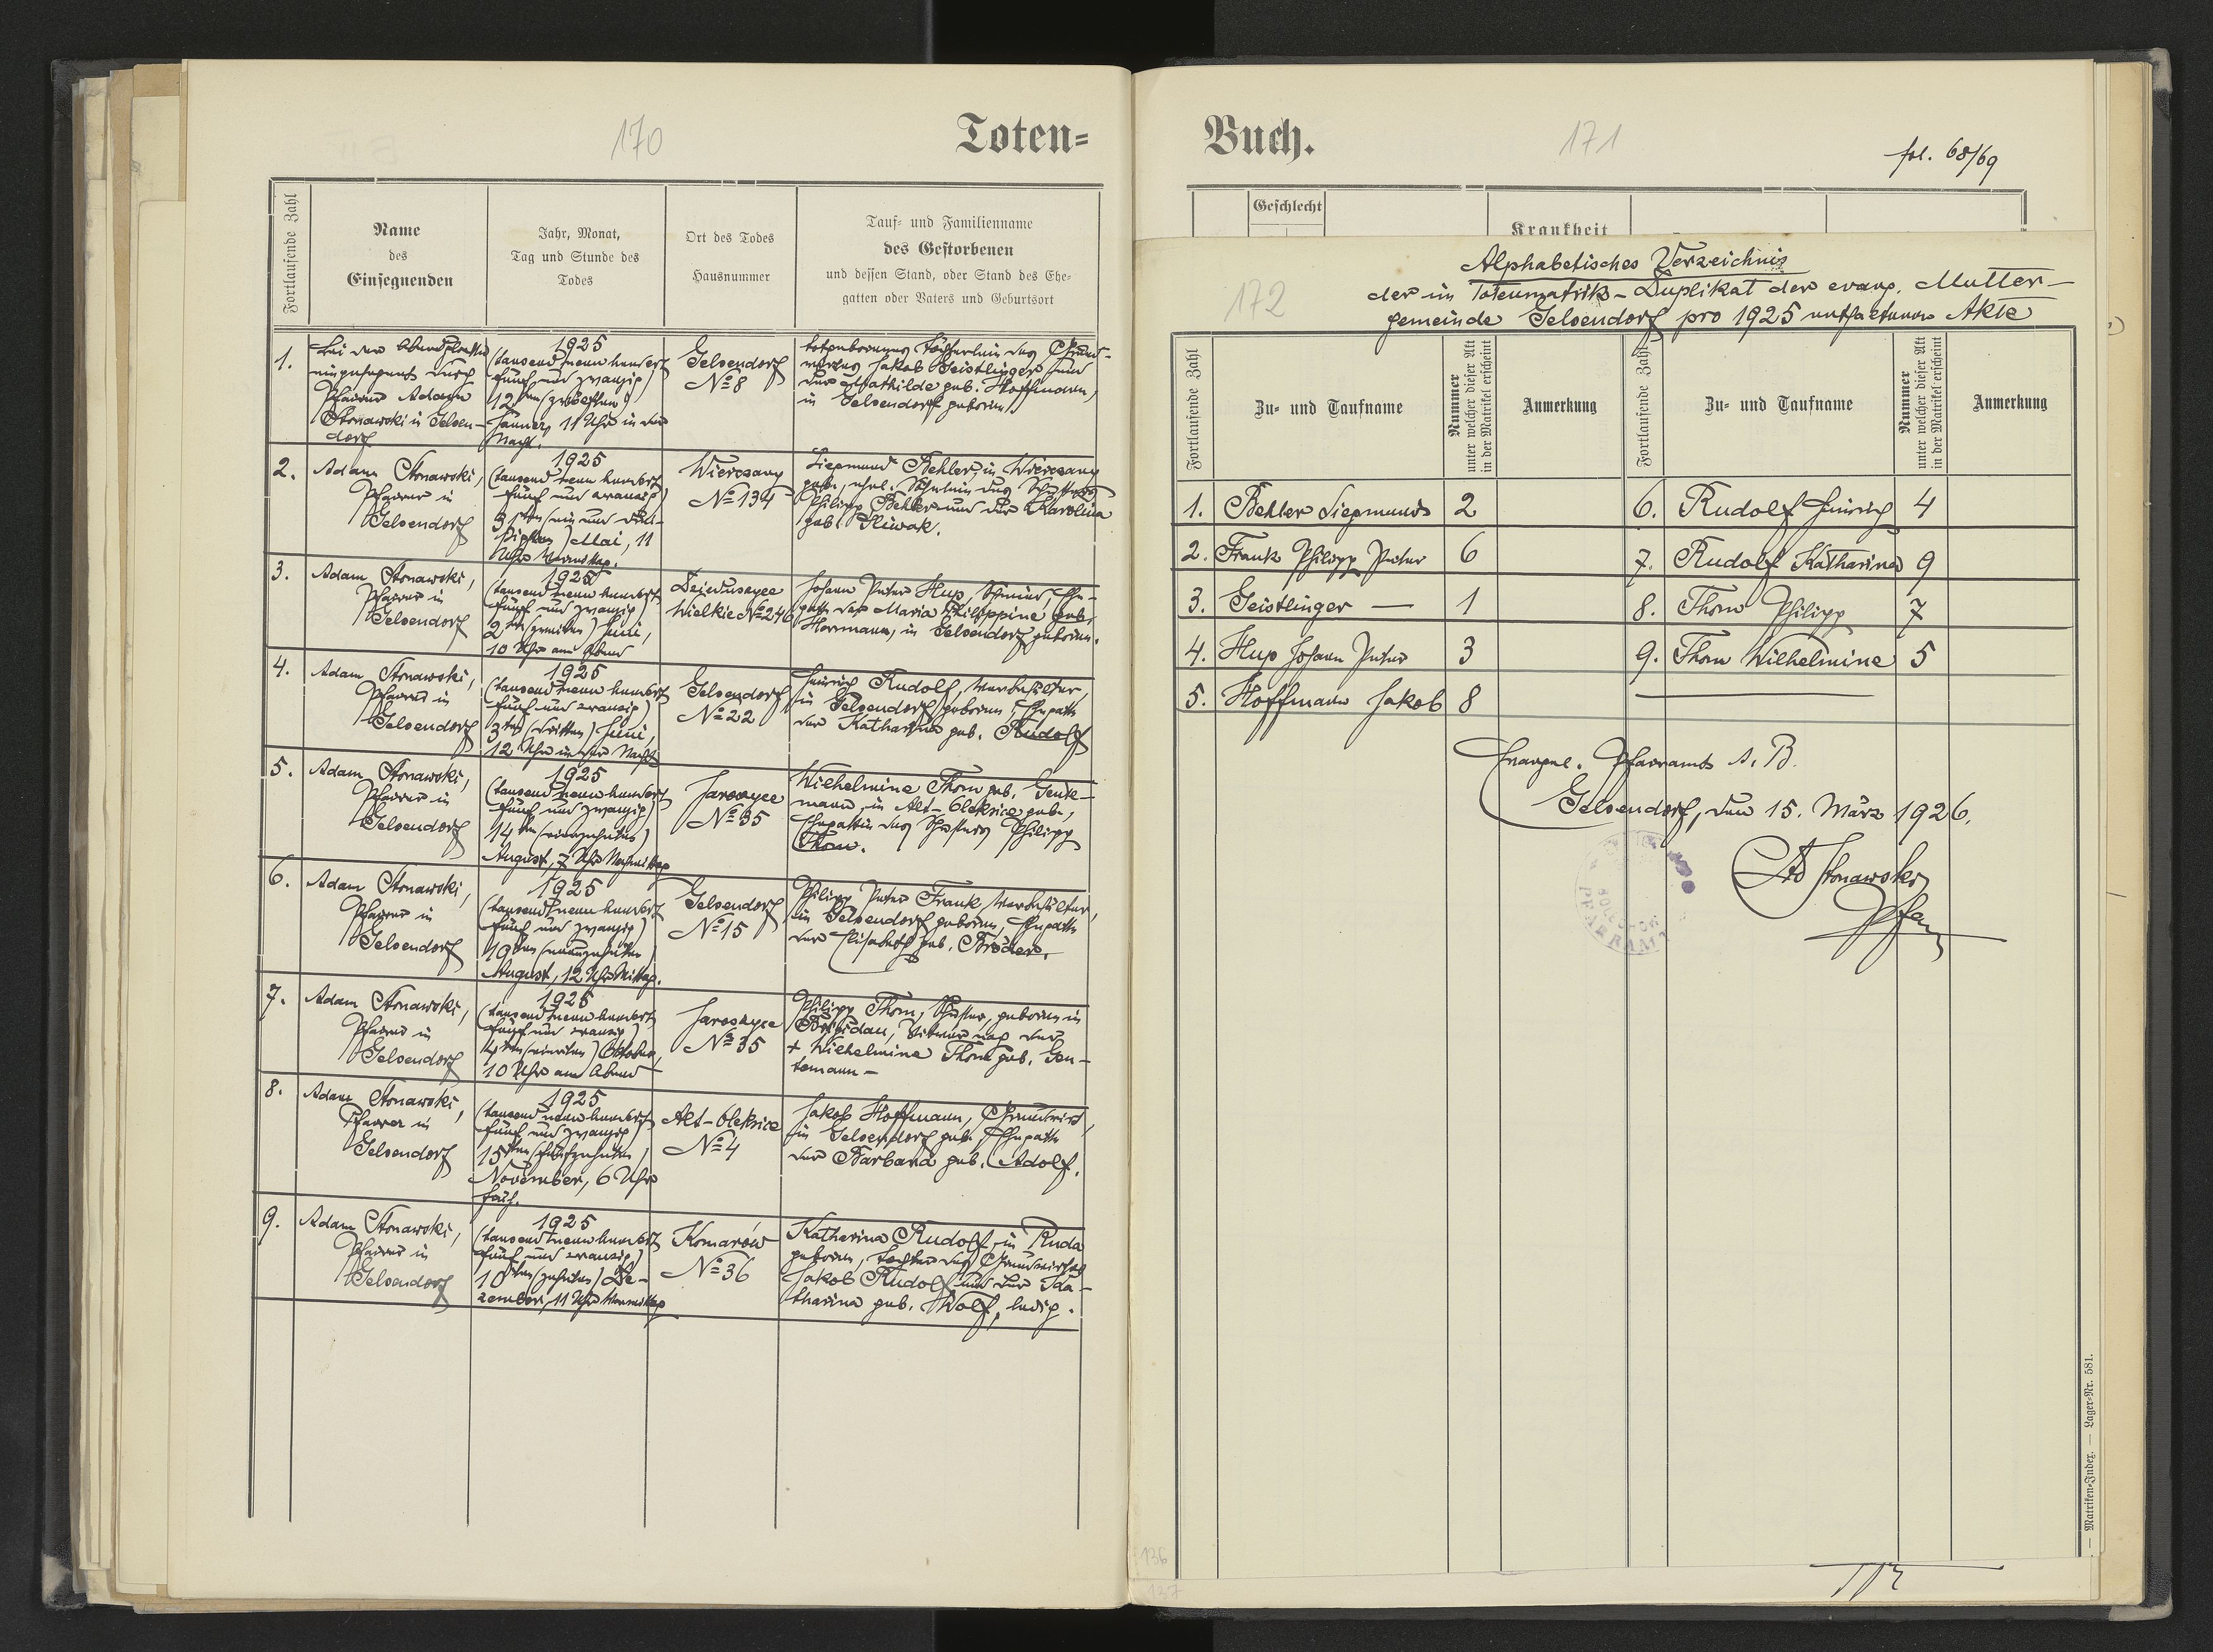 170
Toten=
Fortlaufende Zahl
Name
des
Einsegnenden
Jahr, Monat,
Tag und Stunde des
Todes
Ort des Todes
Hausnummer
Tauf= und Familienname
des Gestorbenen
und dessen Stand, oder Stand des Ehe=
gatten oder Vaters und Geburtsort
1.
Pfarrer Adam
Stonawski in Gelsen-
dorf
1925
(tausend neun hundert
fünf und zwanzig)
12ten (zwölften)
Jänner, 11 Uhr in der
Nacht.
Gelsendorf
№ 8
totgeborenes Töchterlein des Grund-
wirtes Jakob Geistlinger und
der Mathilde geb. Hoffmann,
in Gelsendorf geboren
2.
Adam Stonawski,
Pfarrer in
Gelsendorf
1925
(tausend neun hundert
fünf und zwanzig)
31ten (ein und drei-
ßigsten) Mai, 11
Uhr Vormittag.
Wierczany
№ 134
Siegmund Behler, in Wierczany
geb., ehel. Söhnlein des Schusters
Philipp Behler und der Karolina
geb. Sliwak.
3.
Adam Stonawski,
Pfarrer in
Gelsendorf
1925
(tausend neun hundert
fünf und zwanzig)
2ten (zweiten) Juni,
10 Uhr am Abend
Dzieduszyce
Wielkie № 246
Johann Peter Hup, Schmied, Ehe-
gatte der Maria Philippine geb.
Herrmann, in Gelsendorf geboren.
4.
Adam Stonawski,
Pfarrer in
Gelsendorf
1925
(tausend neun hundert
fünf und zwanzig)
3ten (dritten) Juni,
12 Uhr in der Nacht
Gelsendorf
№ 22
Heinrich Rudolf,
in Gelsendorf geboren, Ehegatte
der Katharina geb. Rudolf
5.
Adam Stonawski,
Pfarrer in
Gelsendorf
1925
(tausend neun hundert
fünf und zwanzig)
14ten (vierzehnten)
August, 7 Uhr Nachmittag
Jaroszyce
№ 35
Wilhelmine Thom geb. Gente-
mann, in Alt-Oleksice geb.,
Ehegattin des Schusters Philipp
Thom.
6.
Adam Stonawski,
Pfarrer in
Gelsendorf
1925
(tausend neun hundert
fünf und zwanzig)
19ten (neunzehnten)
August, 12 Uhr Mittag.
Gelsendorf
№ 15
Philipp Peter Frank
in Gelsendorf geboren, Ehegatte
der Elisabeth geb. Bröder.
7.
Adam Stonawski,
Pfarrer in
Gelsendorf
1925
(tausend neun hundert
fünf und zwanzig)
4ten (vierten) Oktober,
10 Uhr am Abend
Jaroszyce
№ 35
Philipp Thom, Schuster, geboren in
Brigidau, Witwer nach der
+ Wilhelmine Thom geb. Gen-
temann -
8.
Adam Stonawski,
Pfarrer in
Gelsendorf
1925
(tausend neun hundert
fünf und zwanzig)
15ten (fünfzehnten)
November, 6 Uhr
früh.
Alt-Oleksice
№ 4
Jakob Hoffmann, Grundwirt,
in Gelsendorf geb., Ehegatte
der Barbara geb. Adolf.
9.
Adam Stonawski,
Pfarrer in
Gelsendorf
1925
(tausend neun hundert
fünf und zwanzig)
10ten (zehnten) De-
zember, 11 Uhr Vormittag
Komarów
№ 36
Katharina Rudolf, in Ruda
geboren, Tochter des Grundwirtes
Jakob Rudolf und der Ka-
tharina geb. Wolf, ledig.
Buch.
171
fol. 68/69
Geschlecht
Krankheit
172
Alphabetisches Verzeichnis
der im Totenmatrik-Duplikat der evang. Mutter-
gemeinde Gelsendorf pro 1925 enthaltenen Akte
Fortlaufende Zahl
Zu= und Taufname
Nummer
unter welcher dieser Akt
in der Matrikel erscheint
Anmerkung
Fortlaufende Zahl
Zu= und Taufname
Nummer
unter welcher dieser Akt
in der Matrikel erscheint
Anmerkung
1. Behler Siegmund 2
6. Rudolf Heinrich 4
2. Frank Philipp Peter 6
7. Rudolf Katharina 9
3. Geistlinger — 1
8. Thom Philipp 7
4. Hup Johann Peter 3
9. Thom Wilhelmine 5
5. Hoffmann Jakob 8
Evangel. Pfarramt A. B.
Gelsendorf, den 15. März 1926.
Ad Stonawski
Pfarr
PFARRAMT
136
137
— Matriken=Index. — Lager=Nr. 581.